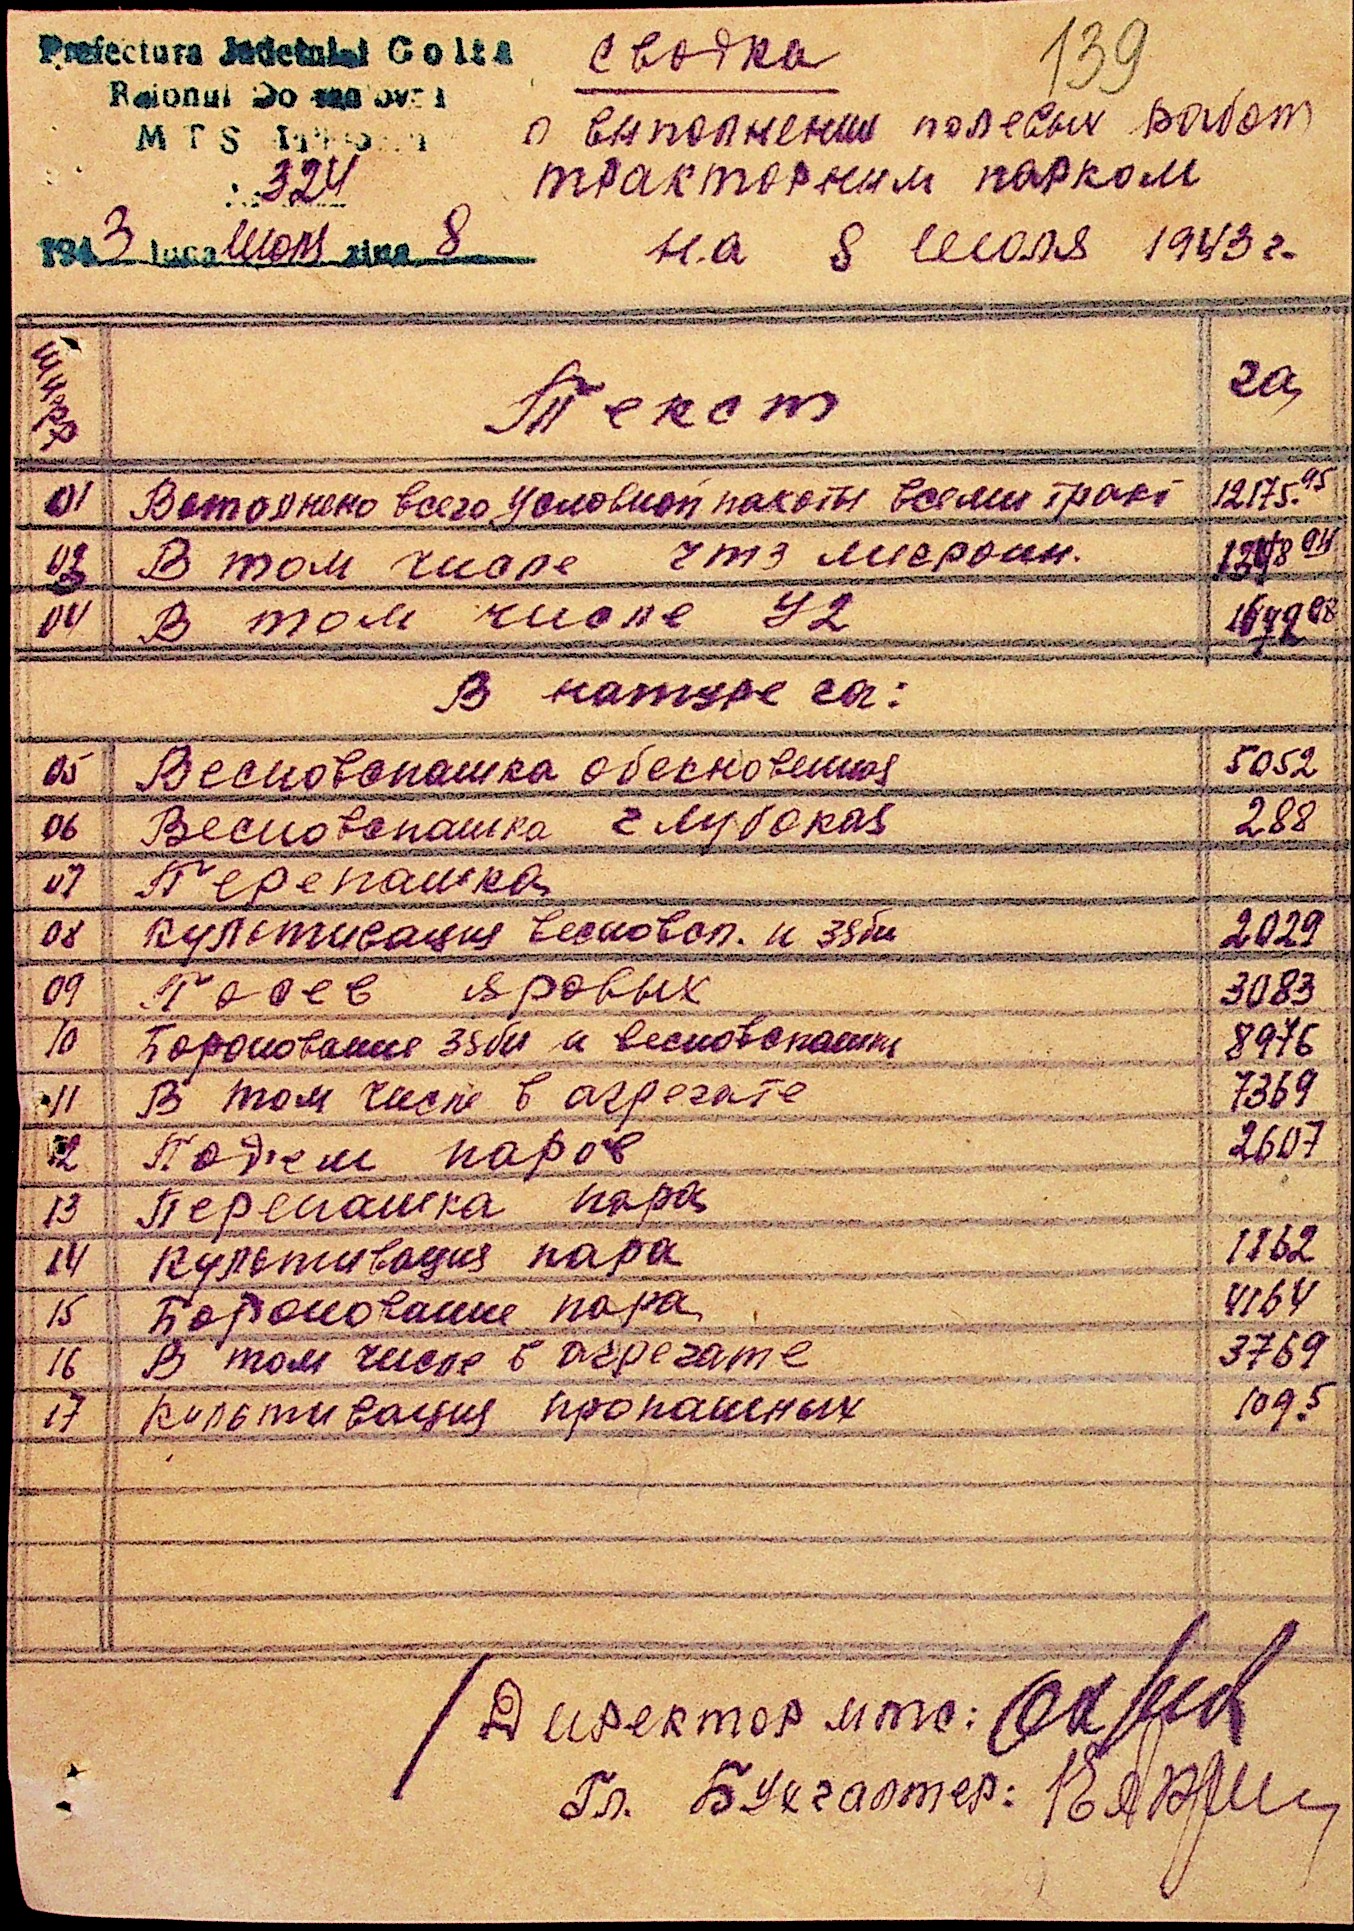 Prefectura Judetului Golta
139
Raionul Domanovca
M T S
324
1943 luna Июля ziua 8
Сводка
о виполнении полевых работ
тракторним парком
на 8 Июля 1943 г.
Шифр Текст га
01 Виполнено всего условной пахоты всеми тракт 12175.95
В том числе ЧТЗ лигроин.
04 В том числе У2
В натуре га:
05 Весновспашка обекновенная 5052
06 Весновспашка глубокая 288
07 Перепашка
08 Культивация весновсп. и зяби 2029
09 Посев яровых 3083
10 Боронование зяби и весновспашки 8976
11 В том числе в агрегате 7369
12 Подъем паров 2607
13 Перепашка пара
14 Культивация пара 1162
15 Боронование пара 4164
16 В том числе в агрегате 3769
17 Культивация пропашных 109.5
Директор мтс:
Гл. Бухгалтер: